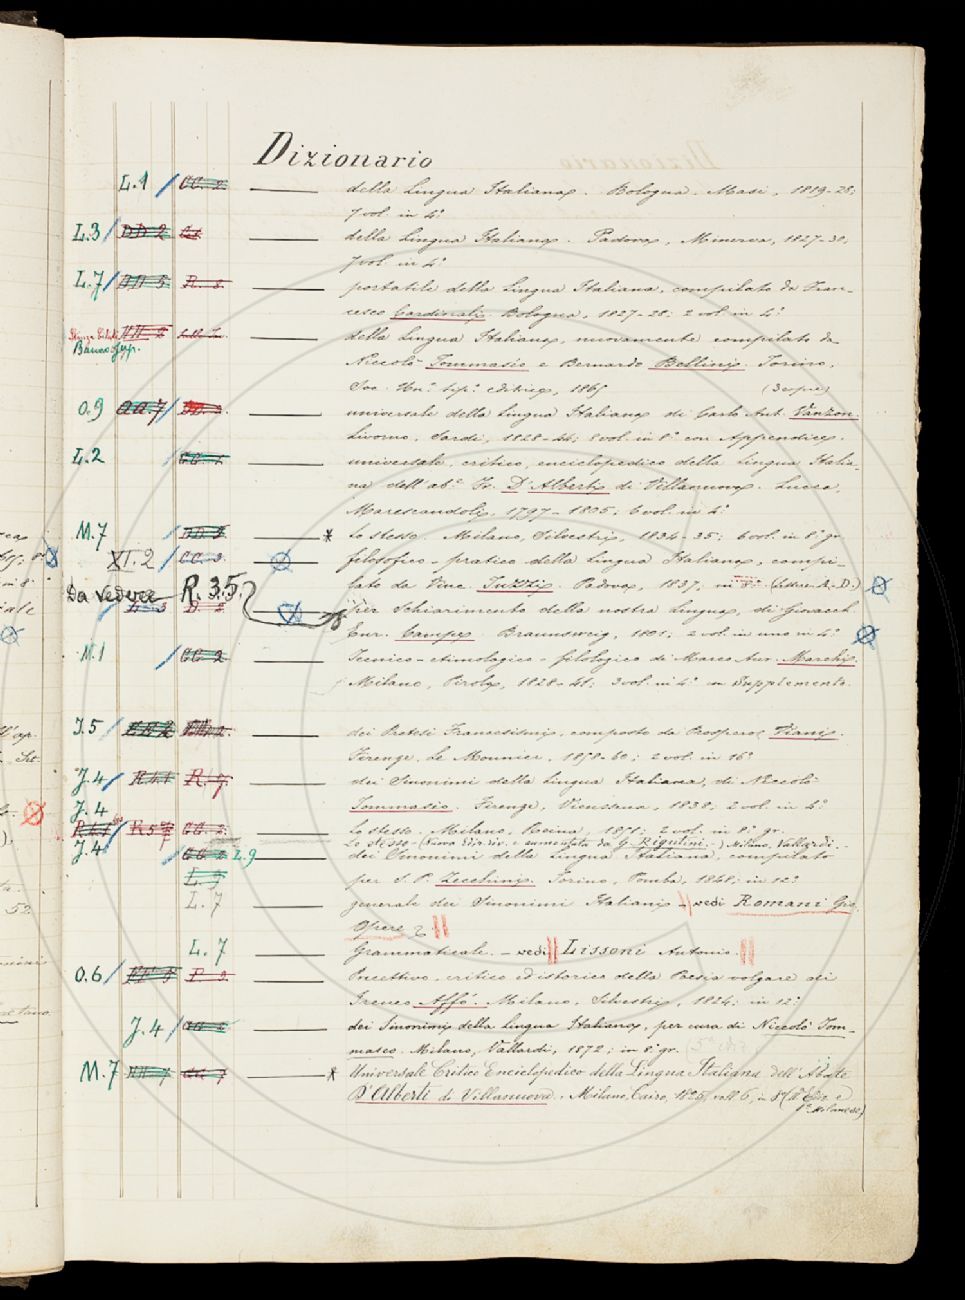 Dizionario
L.1 / CC. 2 — della Lingua Italiana. Bologna. Masi, 1819-28;
7 vol. in 4.°
L.3 / DD 2 — della Lingua Italiana. Padova, Minerva, 1827-30,
7 vol. in 4.°
L.7 / R. 8. — portatile della Lingua Italiana, compilato da Fran-
cesco Cardinali. Bologna, 1827-28; 2 vol. in 4.°
della Lingua Italiana, nuovamente compilato da
Banco Gyp.
Niccolò Tommaseo e Bernardo Bellini. Torino,
Soc. Un.e tip.e editrice, 1865
O.9 / — universale della Lingua Italiana di Carlo Ant. Vanzon.
Livorno, Sardi, 1828-44; 8 vol. in 8.° con Appendice.
L.2 — universale, critico, enciclopedico della Lingua Italia-
na dell'ab.e Fr. D'Alberti di Villanuova. Lucca,
Marescandoli, 1797-1805; 6 vol. in 4.°
M.7 / — * Lo stesso. Milano, Silvestri, 1834-35; 6 vol. in 8.° gr.
XI.2 / CC. 3. filosofico-pratico della Lingua Italiana, compi-
lato da Vinc. Tuzzi. Padova, 1837; in 8.° (Lettere A-D.)
Da vedere R. 3.5.
D. 2 — per Schiarimento della nostra Lingua, di Gioacch.
Enr. Campe. Braunsweig, 1801; 2 vol. in uno in 4.°
M.1 / CC. 2 — Tecnico-etimologico-filologico di Marco Aur. Marchi.
Milano, Pirola, 1828-41; 2 vol. in 4.° con Supplemento.
J.5 / — dei Pretesi Francesismi, composto da Prospero Viani.
Firenze, Le Monnier, 1858-60; 2 vol. in 16.°
J.4 / R. 7. — dei Sinonimi della Lingua Italiana, di Niccolò
J.4
Tommaseo. Firenze, Vieusseux, 1838; 2 vol. in 4.°
R 5 CC. 2. — Lo stesso. Milano, Reina, 1851; 2 vol. in 8.° gr.
Lo stesso - (Nuova Ediz. riv. e aumentata da G. Rigutini.) Milano, Vallardi.
J.4 / CC 2 L.9 — dei Sinonimi della Lingua Italiana, compilato
per S. P. Zecchini. Torino, Pomba, 1848; in 12.°
L. 7 generale dei Sinonimi Italiani - vedi Romani Gio.
Opere 2.
L. 7 — Grammaticale. - vedi Lissoni Antonio.
O.6 / P. 9. — Precettivo, critico ed istorico della Poesia volgare di
Ireneo Affò. Milano, Silvestri, 1824; in 12.°
J.4 / — dei Sinonimi della Lingua Italiana, per cura di Niccolò Tom-
maseo. Milano, Vallardi, 1872; in 8.° gr.
M.7 — * Universale Critico Enciclopedico della Lingua Italiana dell'Abate
D'Alberti di Villanuova. Milano, Cairo, 1825, voll. 6, in 8.° (II Ediz. e
1.a milanese)